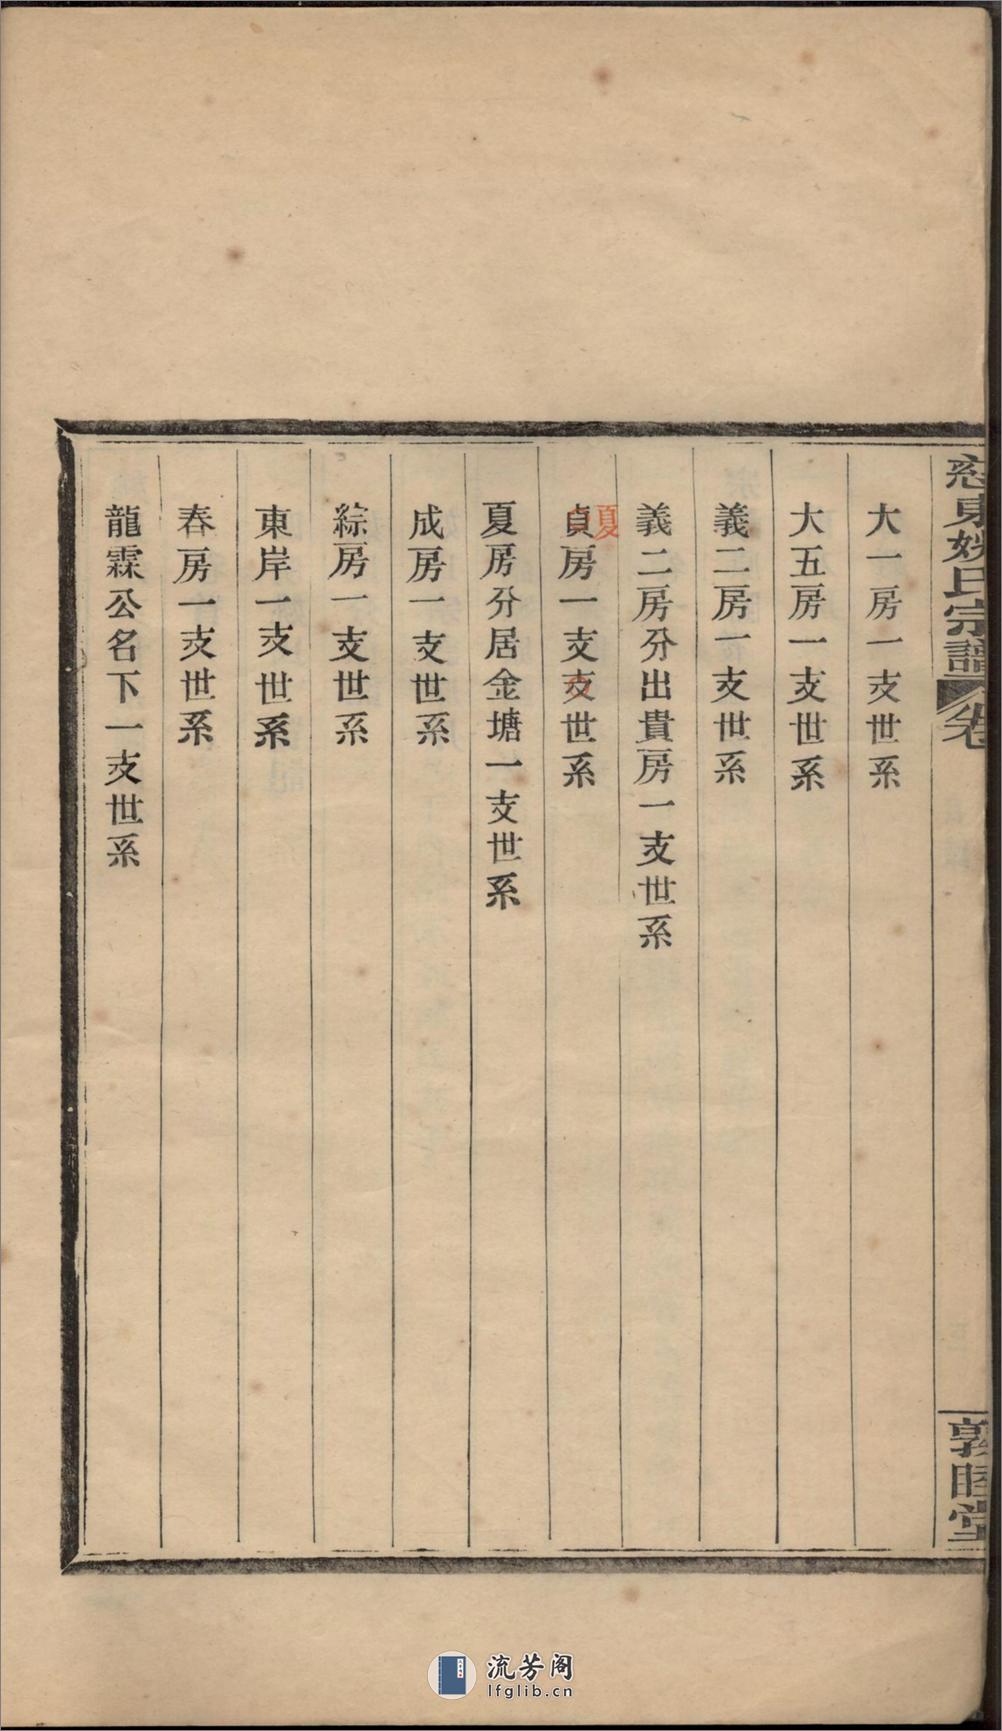 慈東姚氏宗譜 卷
敦睦堂
大一房一支世系
大五房一支世系
義二房一支世系
義二房分出貴房一支世系
夏
貞房一支支世系
夏房分居金塘一支世系
成房一支世系
綜房一支世系
東岸一支世系
春房一支世系
龍霖公名下一支世系
流芳阁
lfglib.cn